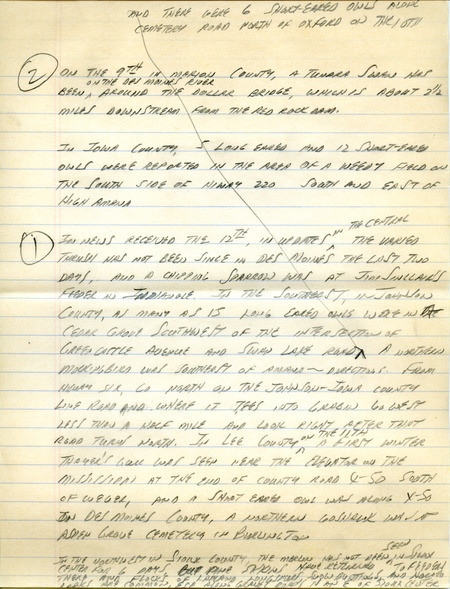 AND THERE WERE 6 SHORT-EARED OWLS ALONG
CEMETERY ROAD NORTH OF OXFORD ON THE 10TH
2 ON THE 9TH IN MARION COUNTY, A TUNDRA SWAN HAS
ON THE DES MOINES RIVER
BEEN AROUND THE DOLLAR BRIDGE, WHICH IS ABOUT 2½
MILES DOWNSTREAM FROM THE RED ROCK DAM.
IN IOWA COUNTY, 5 LONG EARED AND 12 SHORT-EARED
OWLS WERE REPORTED IN THE AREA OF A WEEDY FIELD ON
THE SOUTH SIDE OF HIWAY 220 SOUTH AND EAST OF
HIGH AMANA
1 IN NEWS RECEIVED THE 12TH, IN UPDATES IN THE CENTRAL THE VARIED
THRUSH HAS NOT BEEN SINCE IN DES MOINES THE LAST TWO
DAYS, AND A CHIPPING SPARROW WAS AT JIM SINCLAIR'S
FEEDER IN INDIANOLA. IN THE SOUTHEAST, IN JOHNSON
COUNTY, AS MANY AS 15 LONG EARED OWLS WERE IN
CEDAR GROVE SOUTHWEST OF THE INTERSECTION OF
GREENCASTLE AVENUE AND SWAN LAKE ROAD A NORTHERN
MOCKINGBIRD WAS SOUTHEAST OF AMANA - DIRECTIONS FROM
HIWAY SIX, GO NORTH ON THE JOHNSON-IOWA COUNTY
LINE ROAD AND WHERE IT TEES INTO GRABIN GO WEST
LESS THAN A HALF MILE AND LOOK RIGHT AFTER THAT
ROAD TURNS NORTH. IN LEE COUNTY ON THE 11TH A FIRST WINTER
THAYER'S GULL WAS SEEN NEAR THE ELEVATOR ON THE
MISSISSIPPI AT THE END OF COUNTY ROAD X-50 SOUTH
OF WEVER, AND A SHORT EARED OWL WAS ALONG X-50
IN DES MOINES COUNTY, A NORTHERN GOSHAWK WAS AT
ASPEN GROVE CEMETERY IN BURLINGTON
IN THE NORTHWEST IN SIOUX COUNTY THE MERLIN HAS NOT BEEN SEEN IN SIOUX
CENTER FOR 6 DAYS BUT PINE SISKINS HAVE RETURNED TO FEEDERS
THERE, AND FLOCKS OF LAPLAND LONGSPURS, SNOW BUNTINGS, AND HORNED
LARKS ARE COMMON ALONG GRAVEL ROADS